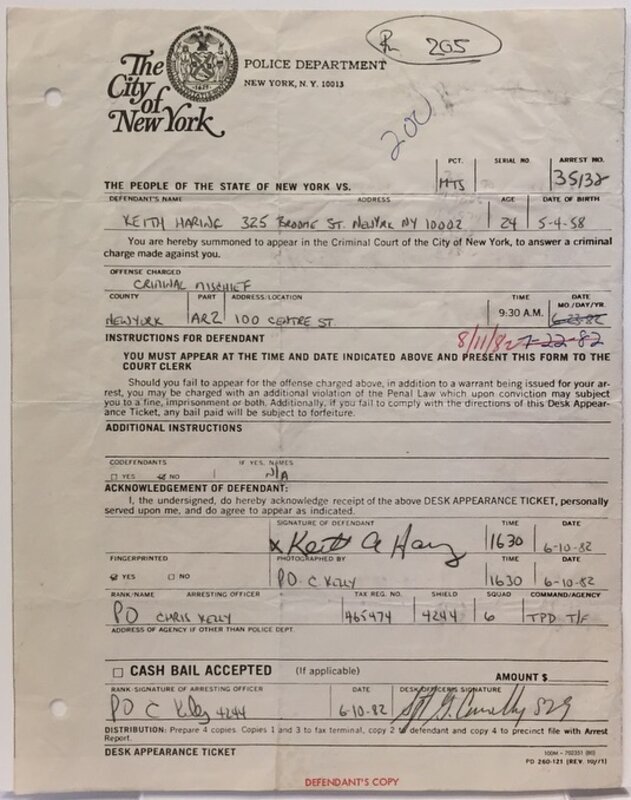 The City of New York
1625
POLICE DEPARTMENT
NEW YORK, N. Y. 10013
205
200
PCT. SERIAL NO. ARREST NO.
THE PEOPLE OF THE STATE OF NEW YORK VS. MTS 35132
DEFENDANT'S NAME ADDRESS AGE DATE OF BIRTH
KEITH HARING 325 BROOME ST. NEWYORK NY 10002 24 5-4-58
You are hereby summoned to appear in the Criminal Court of the City of New York, to answer a criminal
charge made against you.
OFFENSE CHARGED
CRIMINAL MISCHIEF
COUNTY PART ADDRESS/LOCATION TIME DATE
MO./DAY/YR.
NEWYORK AR2 100 CENTRE ST 9:30 A.M. 6-23-82
8/11/82 7-22-82
INSTRUCTIONS FOR DEFENDANT
YOU MUST APPEAR AT THE TIME AND DATE INDICATED ABOVE AND PRESENT THIS FORM TO THE
COURT CLERK
Should you fail to appear for the offense charged above, in addition to a warrant being issued for your ar-
rest, you may be charged with an additional violation of the Penal Law which upon conviction may subject
you to a fine, imprisonment or both. Additionally, if you fail to comply with the directions of this Desk Appear-
ance Ticket, any bail paid will be subject to forfeiture.
ADDITIONAL INSTRUCTIONS
CODEFENDANTS IF YES, NAMES
YES NO N/A
ACKNOWLEDGEMENT OF DEFENDANT:
I, the undersigned, do hereby acknowledge receipt of the above DESK APPEARANCE TICKET, personally
served upon me, and do agree to appear as indicated.
SIGNATURE OF DEFENDANT TIME DATE
x Keith A Haring 1630 6-10-82
FINGERPRINTED PHOTOGRAPHED BY TIME DATE
YES NO PO C KELLY 1630 6-10-82
RANK/NAME ARRESTING OFFICER TAX REG. NO. SHIELD SQUAD COMMAND/AGENCY
PO CHRIS KELLY 465474 4244 6 TPD T/F
ADDRESS OF AGENCY IF OTHER THAN POLICE DEPT.
CASH BAIL ACCEPTED (If applicable) AMOUNT $
RANK-SIGNATURE OF ARRESTING OFFICER DATE DESK OFFICER'S SIGNATURE
PO C Kelly 4244 6-10-82 Sgt
DISTRIBUTION: Prepare 4 copies. Copies 1 and 3 to fax terminal, copy 2 to defendant and copy 4 to precinct file with Arrest
Report.
DESK APPEARANCE TICKET
100M-702351 (80)
PD 260-121 (REV. 10/71)
DEFENDANT'S COPY